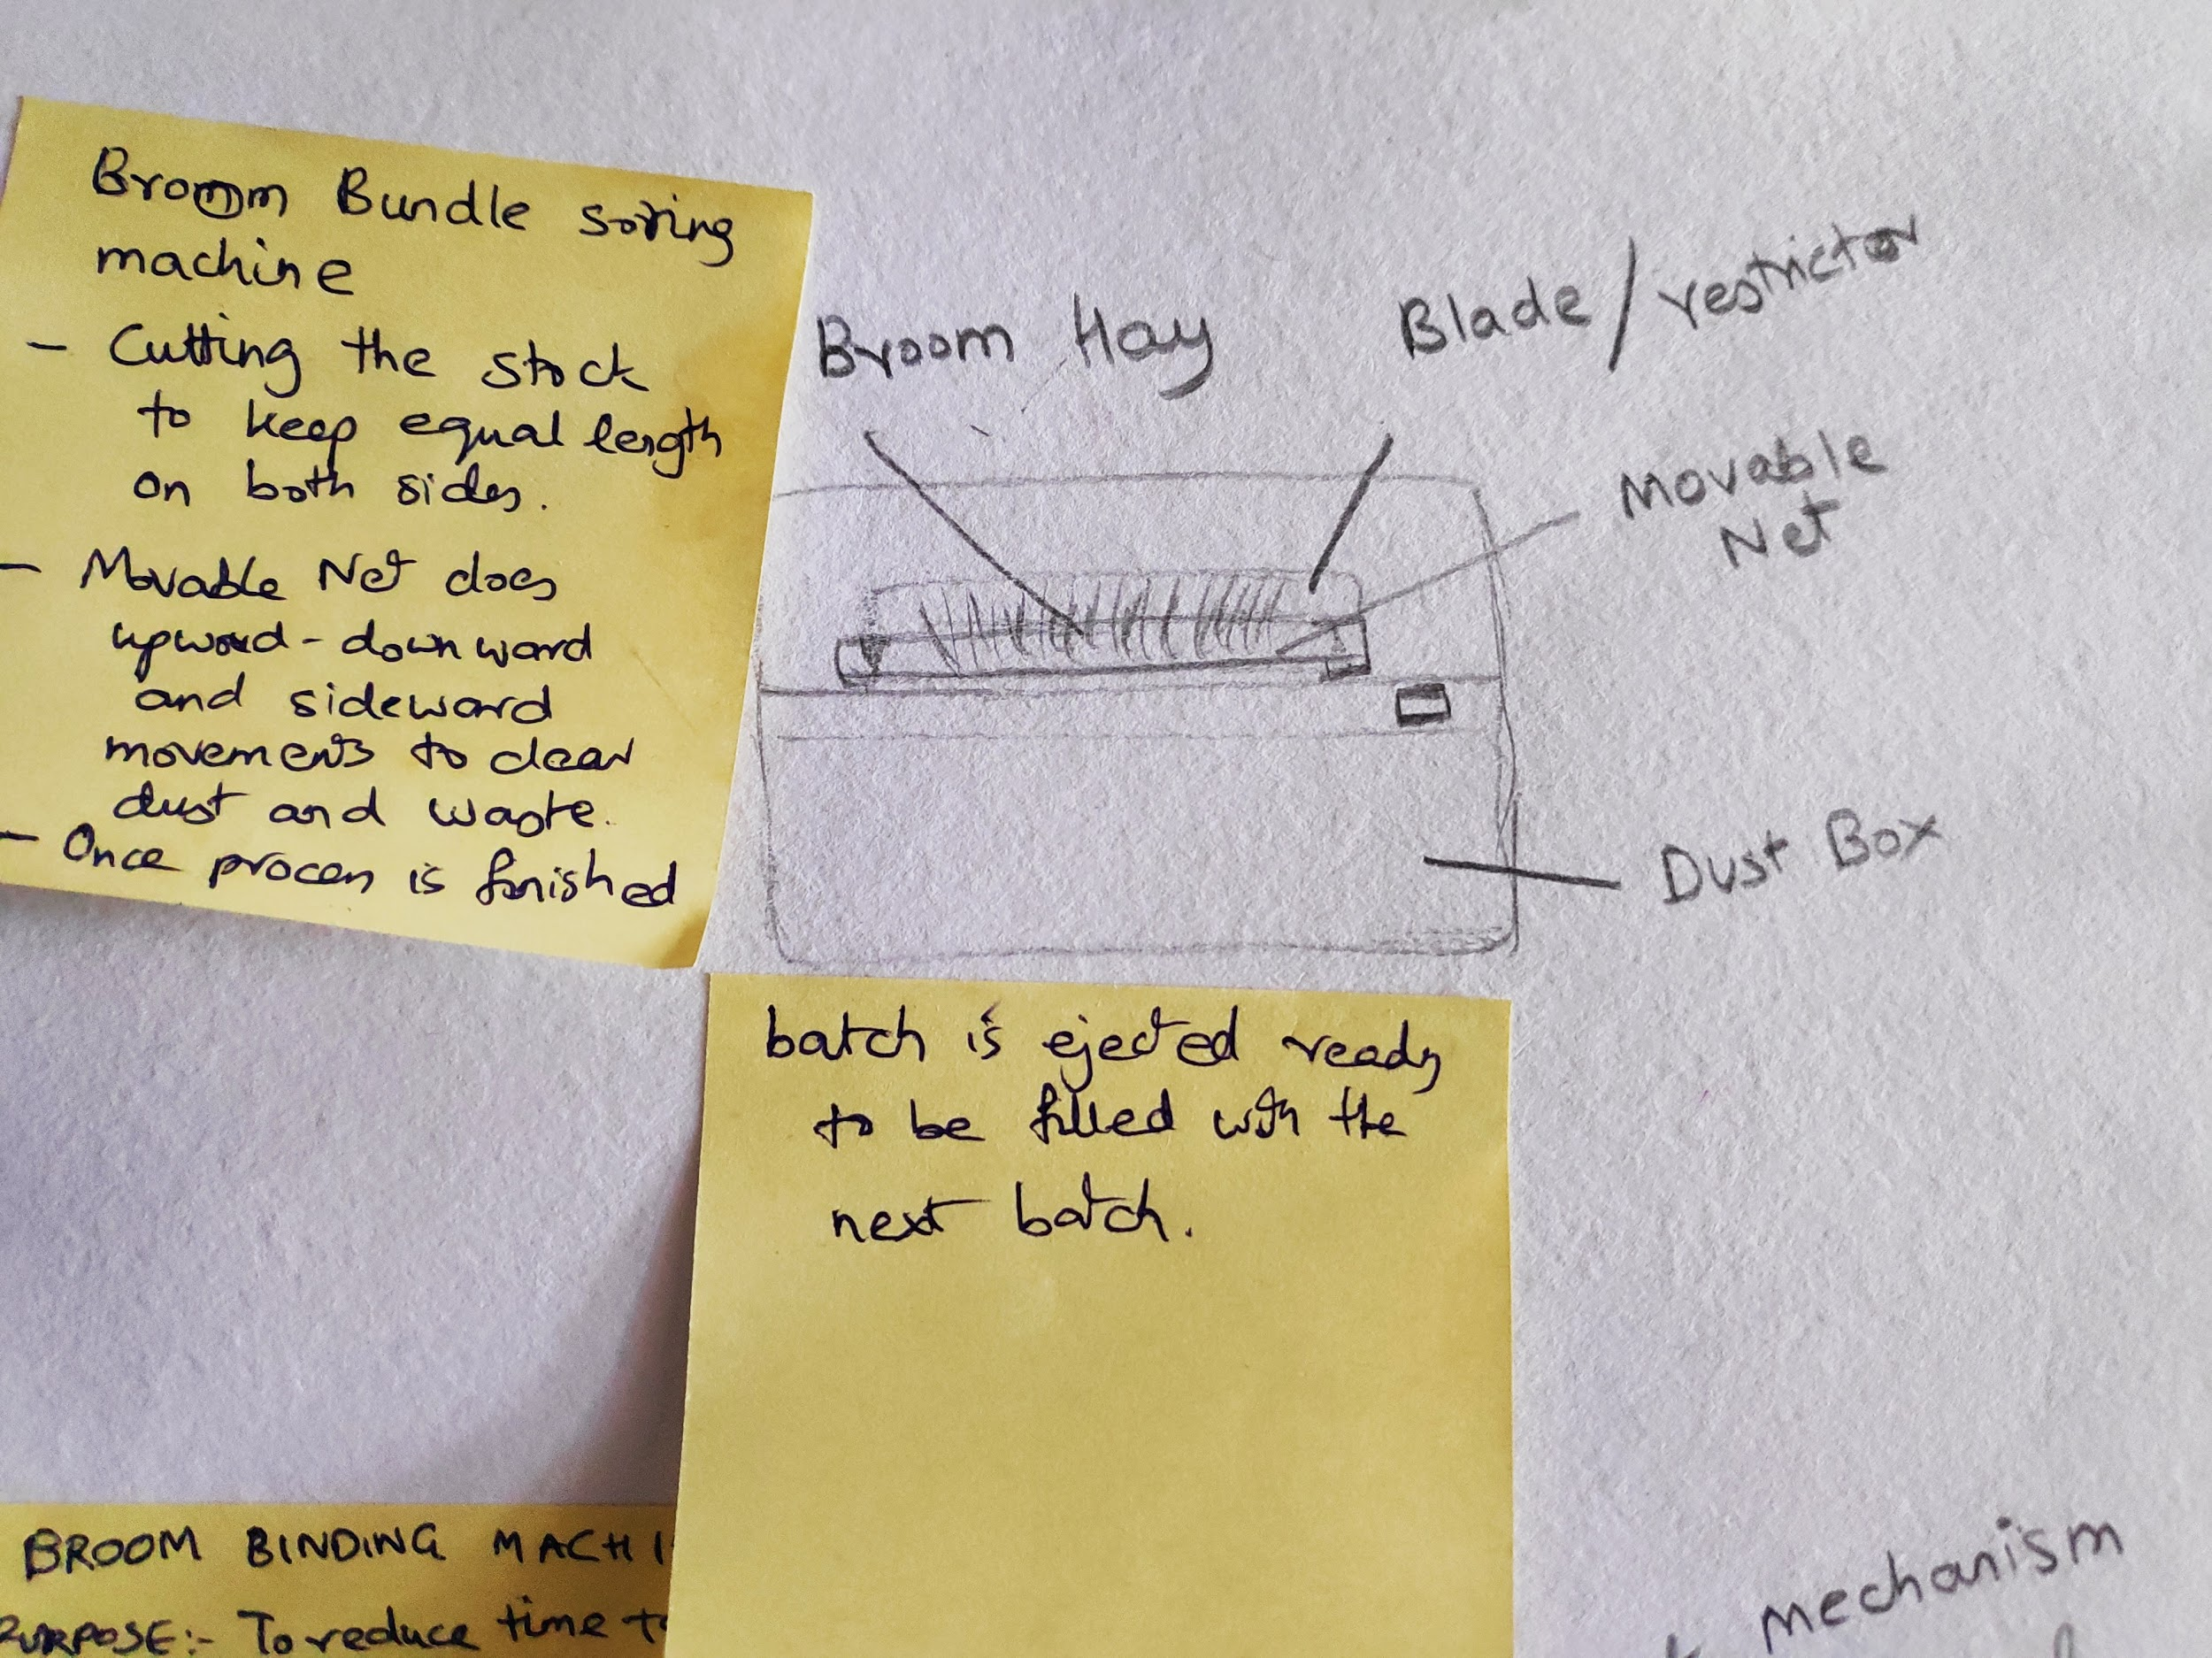 Bromm Bundle soring
machine
- Cutting the stock
to keep equal length
on both sides.
- Movable Net does
upward-downward
and sideward
movements to clear
dust and waste.
- Once process is finished
Broom Hay
Blade/restrictor
Movable
Net
Dust Box
batch is ejected ready
to be filled with the
next batch.
BROOM BINDING MACHI
PURPOSE:- To reduce time to
mechanism